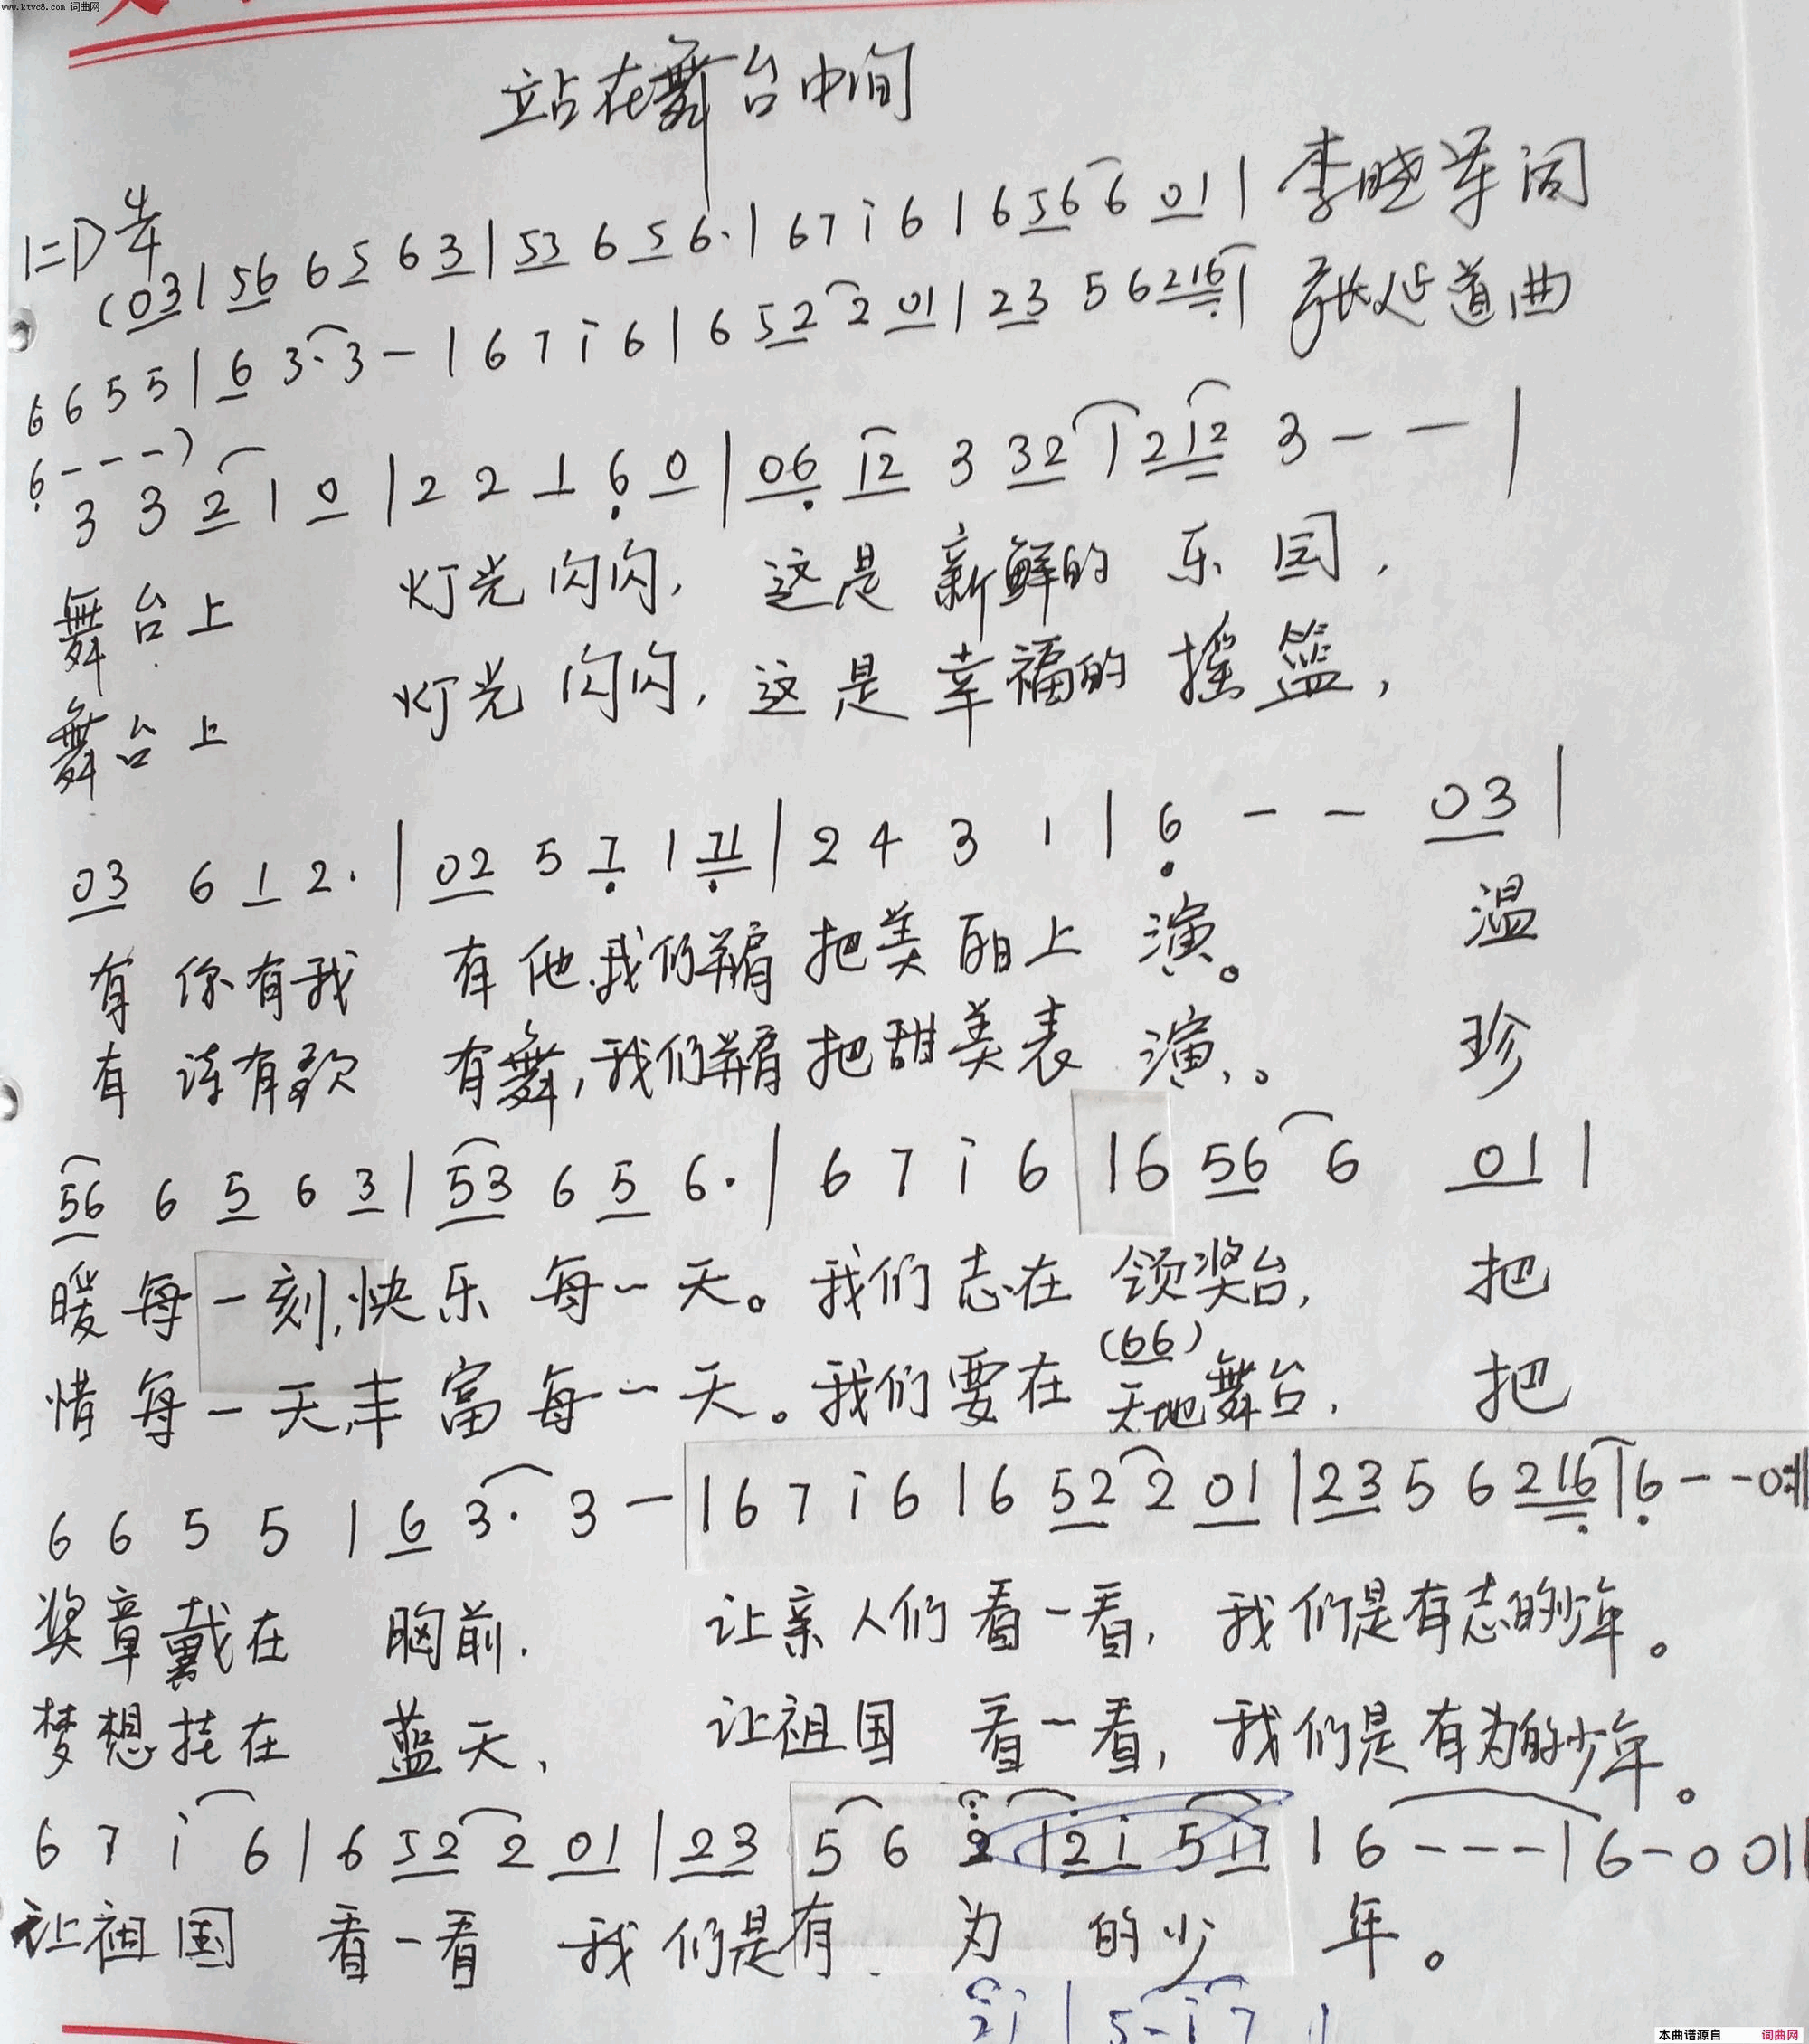 www.ktvc8.com 词曲网
站在舞台中间
1=D 4/4
(03 | 56 6 5 6 3 | 53 6 5 6. | 6 7 i 6 | 6 56 6 01 | 李晓军词
6 6 5 5 | 6 3. 3 - | 6 7 i 6 | 6 52 2 01 | 23 5 6 216 | 张延道曲
6 - - - )
3 3 2 1 0 | 2 2 1 6 0 | 06 12 3 32 | 1 2 12 3 - - |
舞台上 灯光闪闪, 这是新鲜的乐园,
舞台上 灯光闪闪, 这是幸福的摇篮,
03 6 1 2. | 02 5 7 1 71 | 2 4 3 1 | 6 - - 03 |
有你有我 有他,我们 把美丽上演。 温
有诗有歌 有舞,我们 把甜美表演。 珍
56 6 5 6 3 | 53 6 5 6. | 6 7 i 6 | 6 56 6 01 |
暖每一刻,快乐每一天。我们志在领奖台, 把
(66)
惜每一天,丰富每一天。我们要在天地舞台, 把
6 6 5 5 | 6 3. 3 - | 6 7 i 6 | 6 52 2 01 | 23 5 6 216 | 6 - - 0 :||
奖章戴在 胸前. 让亲人们看一看, 我们是有志的少年。
梦想挂在 蓝天, 让祖国 看一看, 我们是有为的少年。
6 7 i 6 | 6 52 2 01 | 23 5 6 2 | 2i 5 17 | 6 - - - | 6 - 0 0 ||
让祖国 看一看 我们是有 为 的少 年。
2i | 5 - i 7 |
本曲谱源自 词曲网